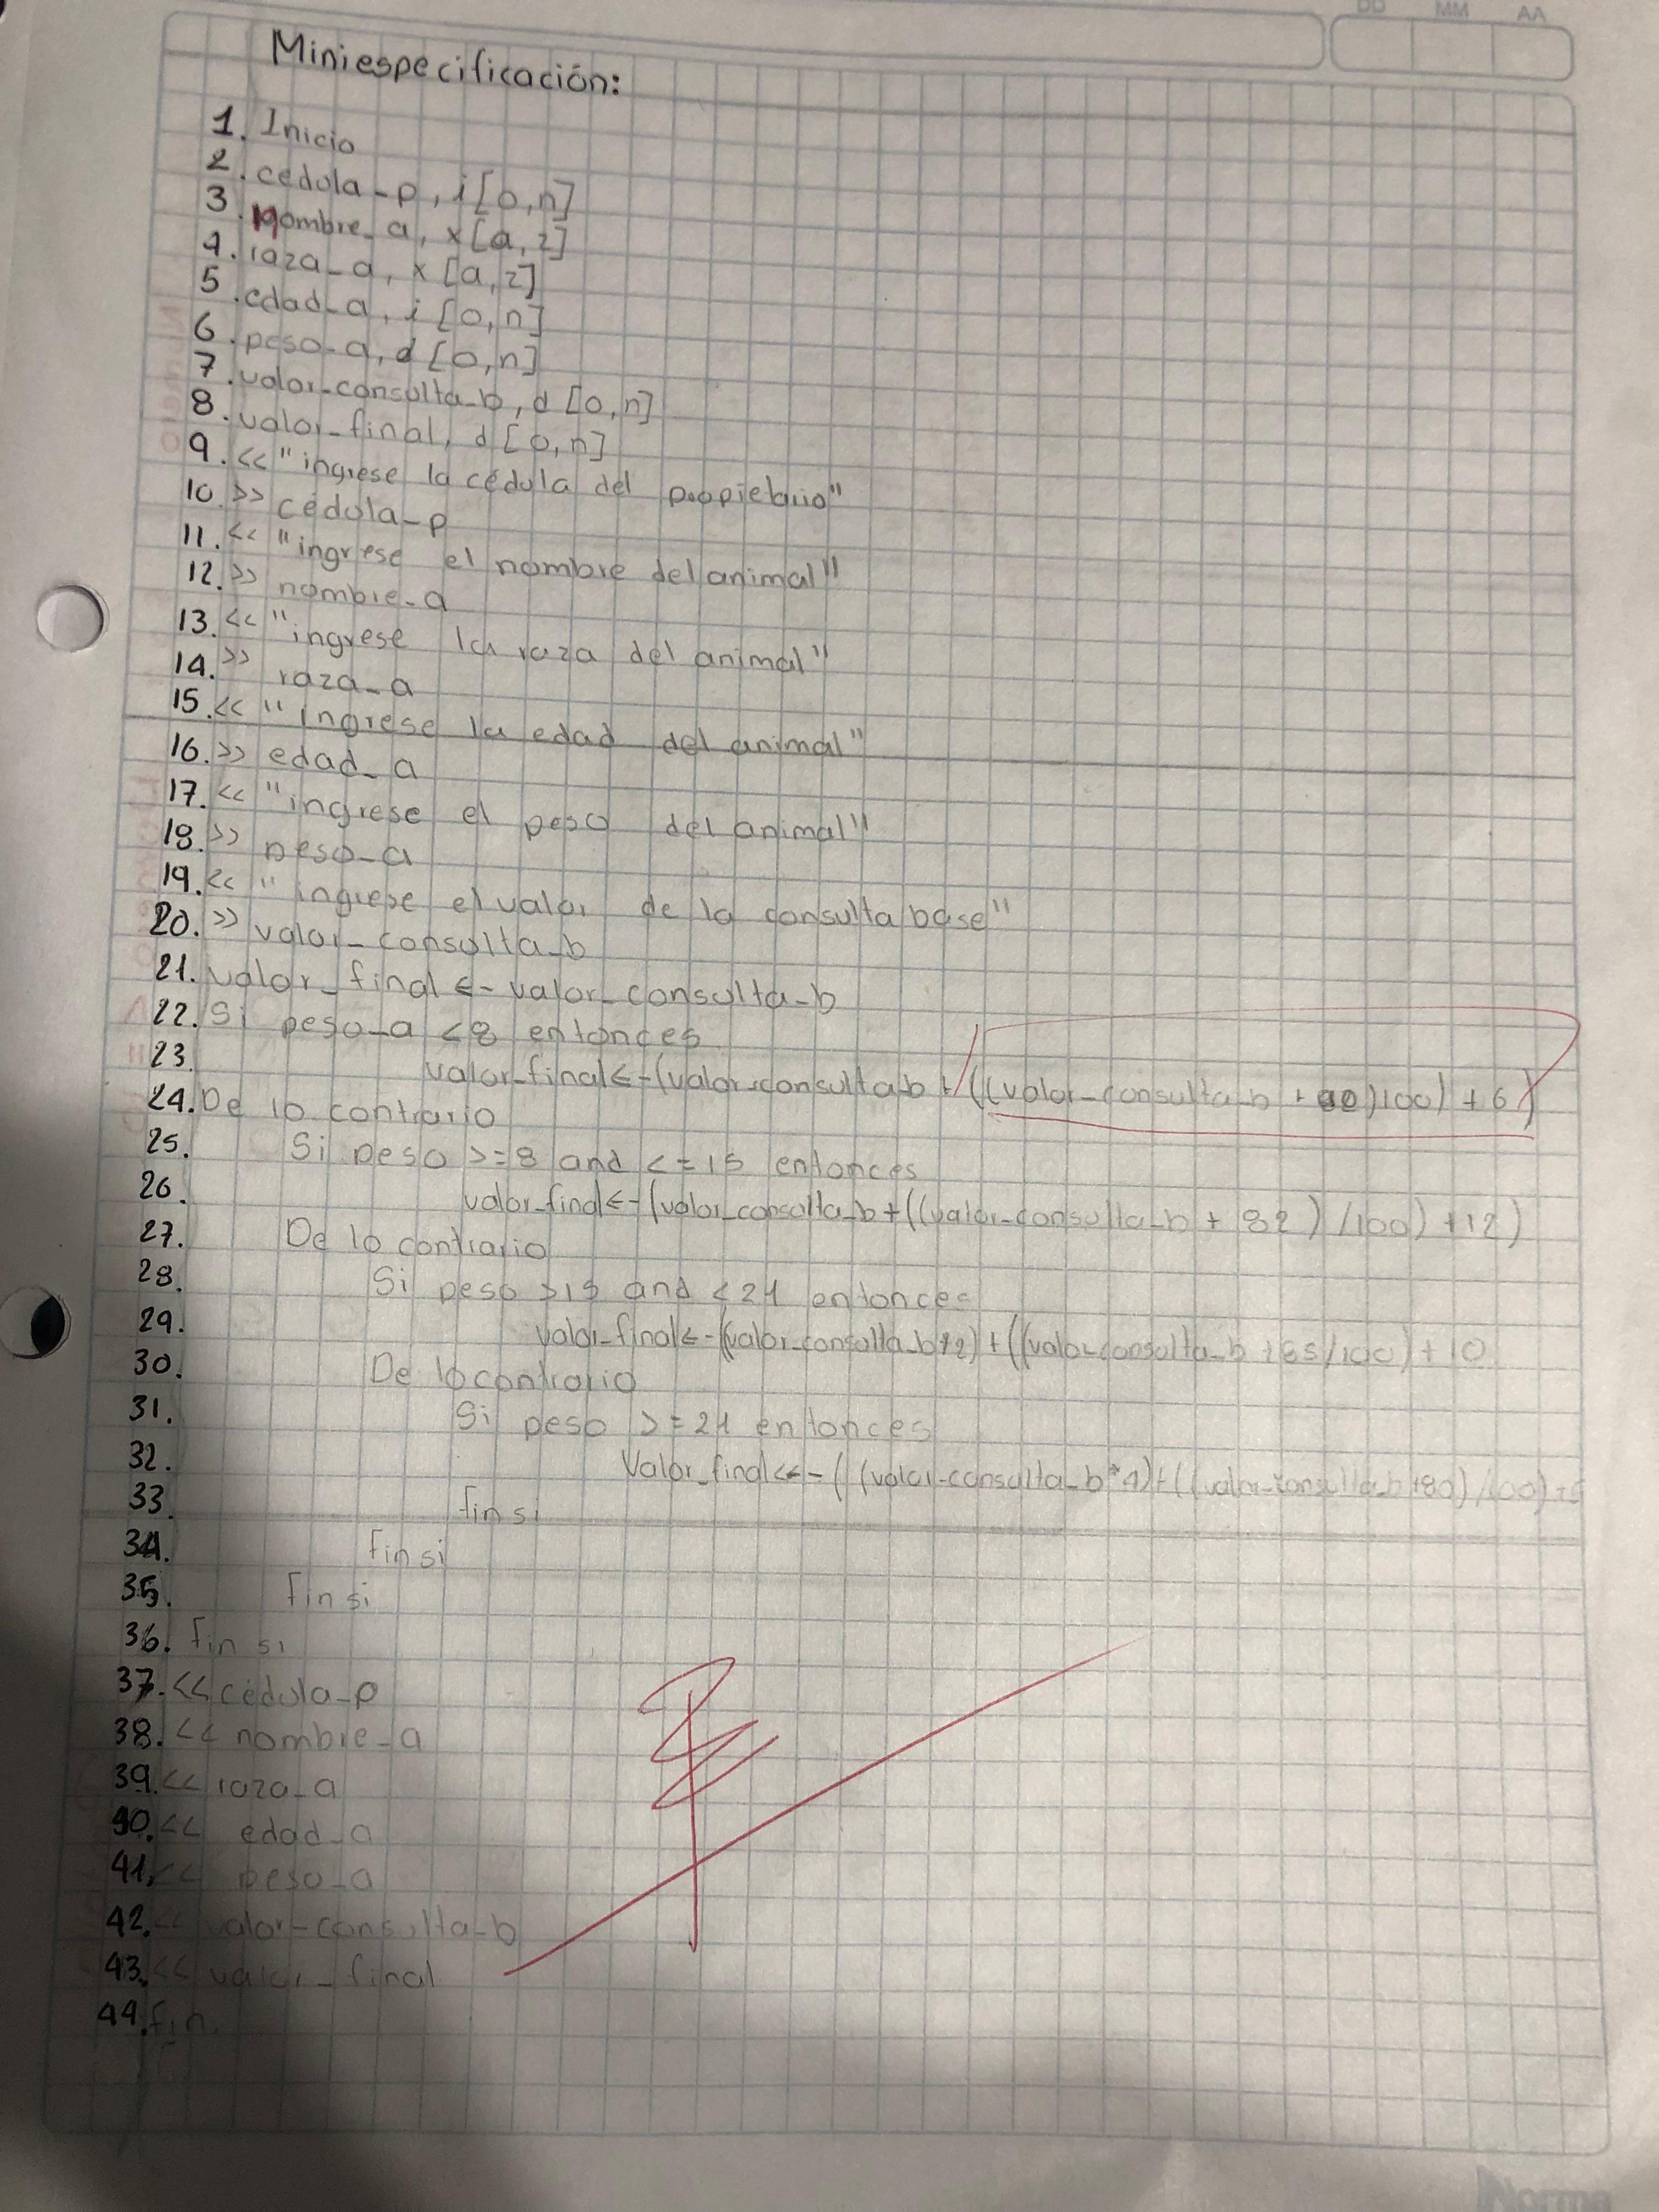 DD MM AA
Miniespecificación:
1. Inicio
2. cedula_p, i[0,n]
3. nombre_a, x[a,z]
4. raza_a, x[a,z]
5. edad_a, i[0,n]
6. peso_a, d[0,n]
7. valor_consulta_b, d[0,n]
8. valor_final, d[0,n]
9. << "ingrese la cédula del propietario"
10. >> cédula_p
11. << "ingrese el nombre del animal"
12. >> nombre_a
13. << "ingrese la raza del animal"
14. >> raza_a
15. << "Ingrese la edad del animal"
16. >> edad_a
17. << "ingrese el peso del animal"
18. >> peso_a
19. << "ingrese el valor de la consulta base"
20. >> valor_consulta_b
21. valor_final <- valor_consulta_b
22. Si peso_a <8 entonces
23. valor_final <- (valor_consulta_b + ((valor_consulta_b + )100) + 6)
24. De lo contrario
25. Si peso >=8 and <=15 entonces
26. valor_final <- (valor_consulta_b + ((valor_consulta_b + 82) /100) +12)
27. De lo contrario
28. Si peso >15 and <21 entonces
29. valor_final <- ((valor_consulta_b+2) + ((valor_consulta_b +85/100) + 10
30. De lo contrario
31. Si peso >=21 entonces
32. Valor_final <- ((valor_consulta_b*4)+((valor_consulta_b+80)/100)
33. fin si
34. fin si
35. fin si
36. fin si
37. << cédula_p
38. << nombre_a
39. << raza_a
40. << edad_a
41. << peso_a
42. << valor_consulta_b
43. << valor_final
44. fin.
Norma